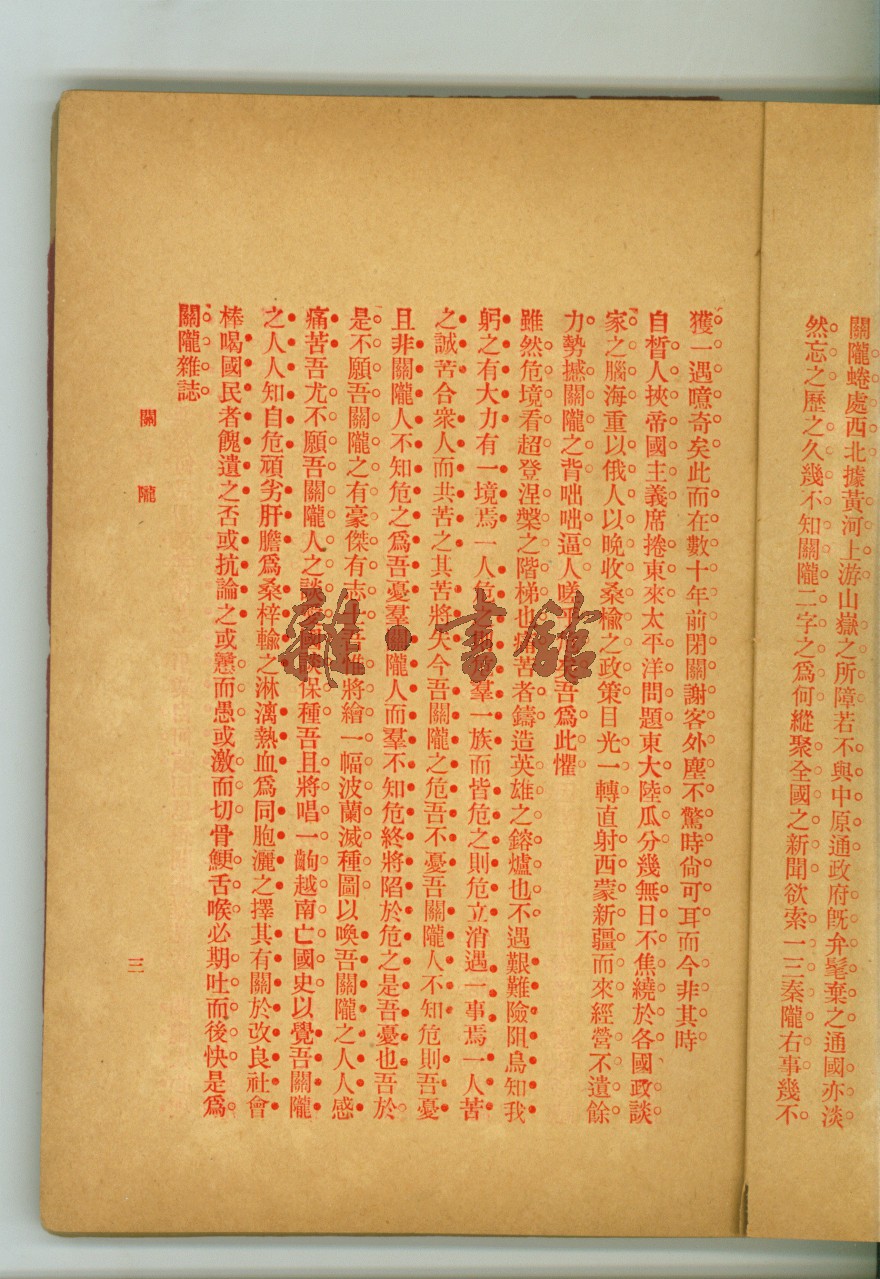 關隴蜷處西北據黃河上游山嶽之所障若不與中原通政府旣弁髦棄之通國亦淡
然忘之歷之久幾不知關隴二字之爲何縱聚全國之新聞欲索一三秦隴右事幾不
獲一遇噫奇矣此而在數十年前閉關謝客外塵不驚時尙可耳而今非其時
自皙人挾帝國主義席捲東來太平洋問題東大陸瓜分幾無日不焦繞於各國政談
家之腦海重以俄人以晚收桑楡之政策目光一轉直射西蒙新疆而來經營不遺餘
力勢撼關隴之背咄咄逼人嗟乎吾爲此懼
雖然危境看超登涅槃之階梯也痛苦者鑄造英雄之鎔爐也不遇艱難險阻烏知我
躬之有大力有一境焉一人危之羣一族而皆危之則危立消遇一事焉一人苦
之誠苦合衆人而共苦之其苦將失今吾關隴之危吾不憂吾關隴人不知危則吾憂
且非關隴人不知危之爲吾憂羣關隴人而羣不知危終將陷於危之是吾憂也吾於
是不願吾關隴之有豪傑有志士吾惟將繪一幅波蘭滅種圖以喚吾關隴之人人感
痛苦吾尤不願吾關隴人之談保種吾且將唱一齣越南亡國史以覺吾關隴
之人人知自危頑劣肝膽爲桑梓輸之淋漓熱血爲同胞灑之擇其有關於改良社會
棒喝國民者餽遺之否或抗論之或戆而愚或激而切骨鯁舌喉必期吐而後快是爲
關隴雜誌
關隴
三
雜·書館